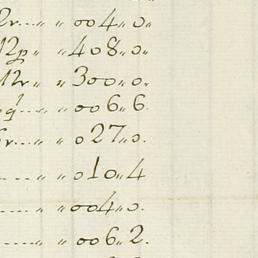 2r.... „ „ 004„ 0.
12p „ „ 408„ 0„
12r „ „ 300„ 0„
q.... „ „ 006„ 6.
r.... „ „ 027„ 0.
.... „ „ 010„ 4
.... „ „ 004„ 0.
.... „ „ 006„ 2.